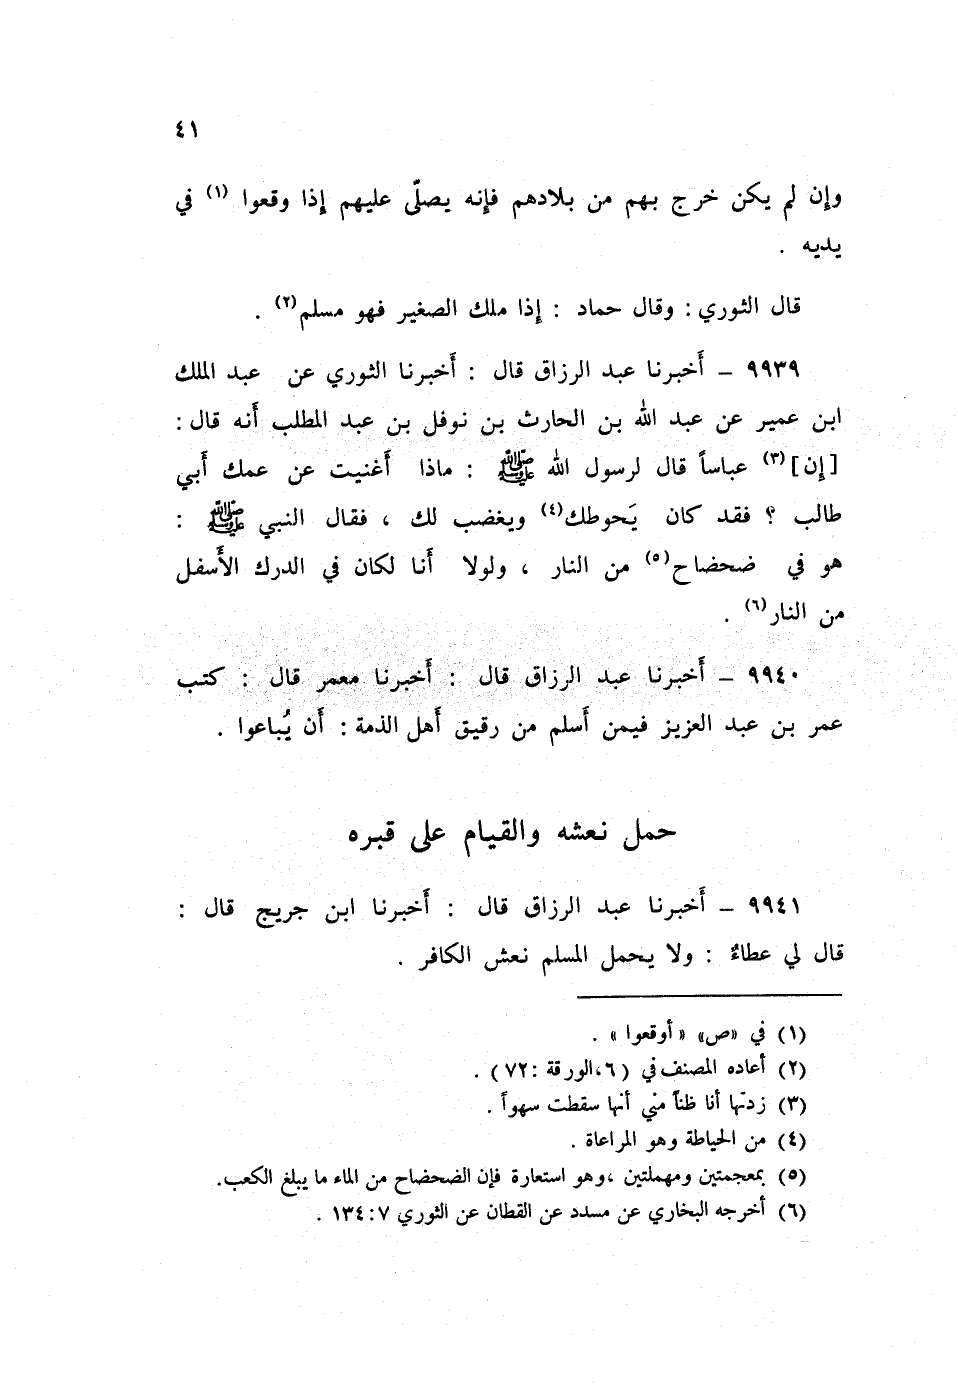 ٤١
وإن لم يكن خرج بهم من بلادهم فإنه يصلّى عليهم إذا وقعوا (١) في
يديه .
قال الثوري : وقال حماد : إذا ملك الصغير فهو مسلم(٢) .
٩٩٣٩ – أَخبرنا عبد الرزاق قال : أَخبرنا الثوري عن عبد الملك
ابن عمير عن عبد الله بن الحارث بن نوفل بن عبد المطلب أَنه قال :
[إن](٣) عباساً قال لرسول الله ﷺ : ماذا أَغنيت عن عمك أَبي
طالب ؟ فقد كان يَحوطك(٤) ويغضب لك ، فقال النبي ﷺ :
هو في ضحضاح(٥) من النار ، ولولا أَنا لكان في الدرك الأَسفل
من النار(٦) .
٩٩٤٠ – أَخبرنا عبد الرزاق قال : أَخبرنا معمر قال : كتب
عمر بن عبد العزيز فيمن أَسلم من رقيق أَهل الذمة : أَن يُباعوا .
حمل نعشه والقيام على قبره
٩٩٤١ – أَخبرنا عبد الرزاق قال : أَخبرنا ابن جريج قال :
قال لي عطاءٌ : ولا يحمل المسلم نعش الكافر .
(١) في «ص» «أوقعوا» .
(٢) أعاده المصنف في (٦،الورقة :٧٢) .
(٣) زدتها أنا ظناً مني أنها سقطت سهواً .
(٤) من الحياطة وهو المراعاة .
(٥) بمعجمتين ومهملتين ،وهو استعارة فإن الضحضاح من الماء ما يبلغ الكعب.
(٦) أخرجه البخاري عن مسدد عن القطان عن الثوري ٧:‏١٣٤ .